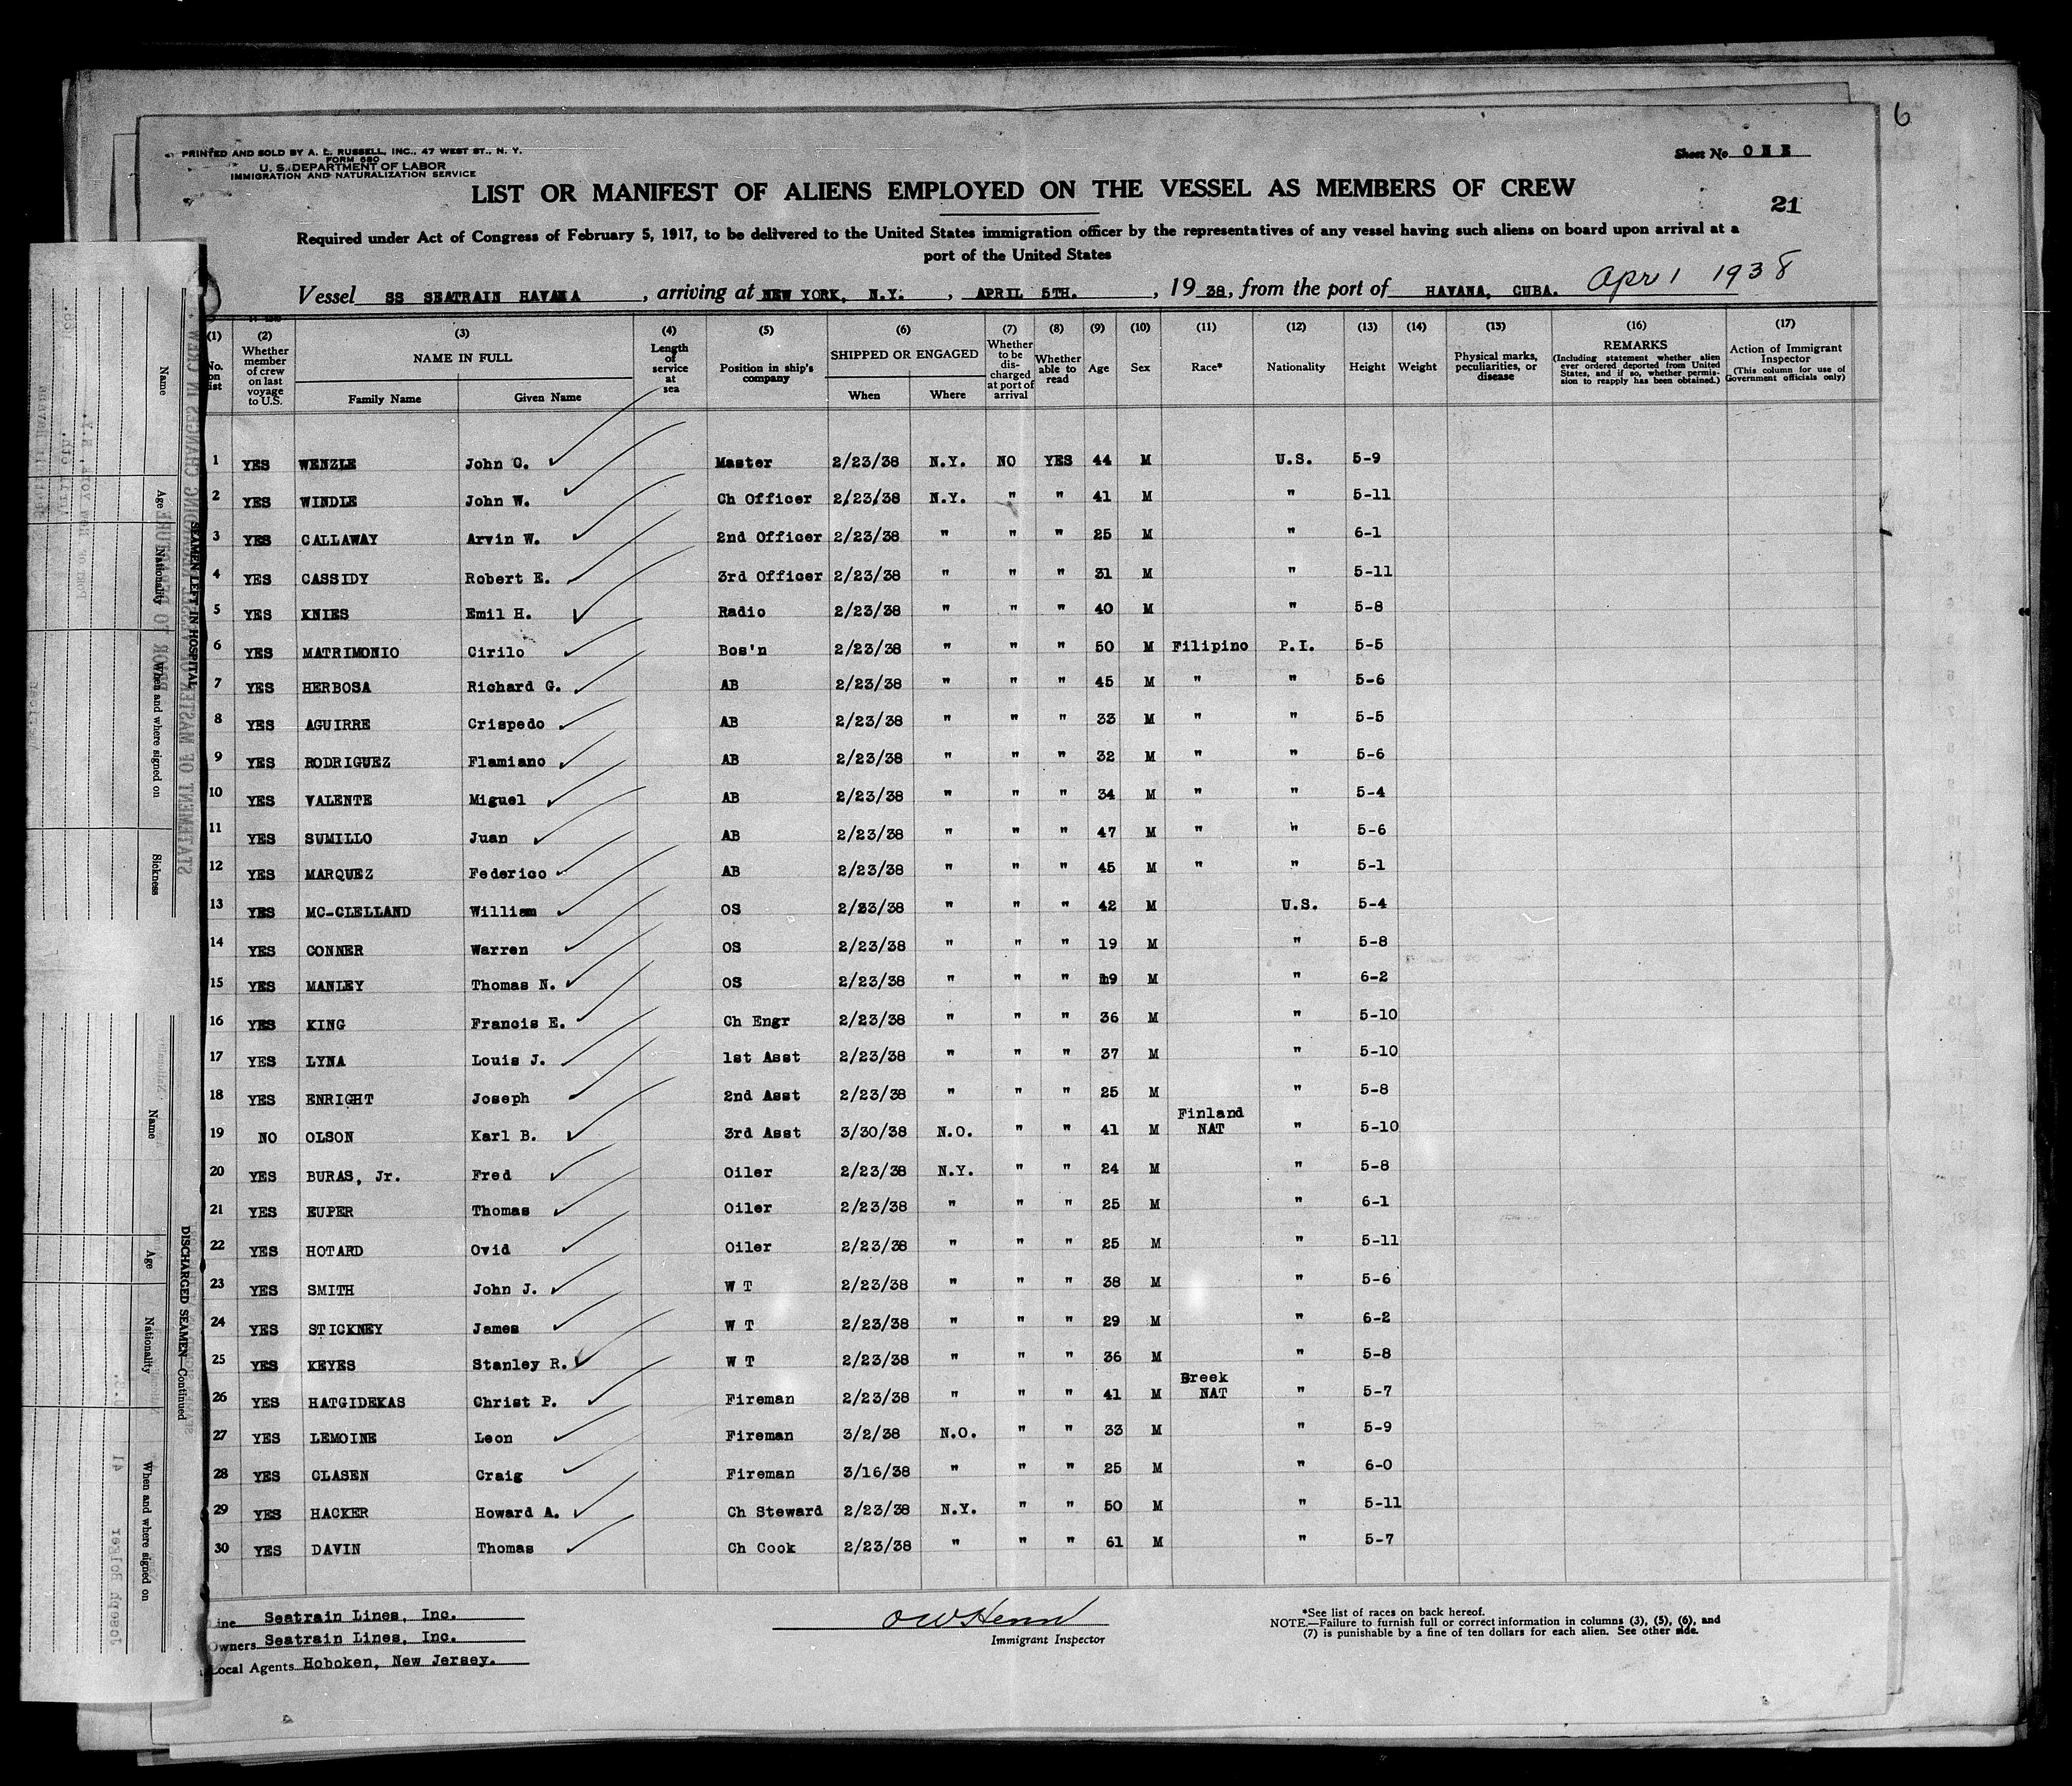 6
PRINTED AND SOLD BY A. L. RUSSELL, INC., 47 WEST ST., N. Y.
FORM 680
U. S. DEPARTMENT OF LABOR
IMMIGRATION AND NATURALIZATION SERVICE
Sheet No. ONE
LIST OR MANIFEST OF ALIENS EMPLOYED ON THE VESSEL AS MEMBERS OF CREW
21
Required under Act of Congress of February 5, 1917, to be delivered to the United States immigration officer by the representatives of any vessel having such aliens on board upon arrival at a
port of the United States
Vessel SS SEATRAIN HAVANA, arriving at NEW YORK, N.Y., APRIL 5TH., 19 38, from the port of HAVANA, CUBA. Apr 1 1938
(1) No. on list (2) Whether member of crew on last voyage to U.S. (3) NAME IN FULL Family Name Given Name (4) Length of service at sea (5) Position in ship's company (6) SHIPPED OR ENGAGED When Where (7) Whether to be discharged at port of arrival (8) Whether able to read (9) Age (10) Sex (11) Race* (12) Nationality (13) Height (14) Weight (15) Physical marks, peculiarities, or disease (16) REMARKS (Including statement whether alien ever ordered deported from United States, and if so, whether permission to reapply has been obtained.) (17) Action of Immigrant Inspector (This column for use of Government officials only)
1 YES WENZLE John G. Master 2/23/38 N.Y. NO YES 44 M U.S. 5-9
2 YES WINDLE John W. Ch Officer 2/23/38 N.Y. " " 41 M " 5-11
3 YES CALLAWAY Arvin W. 2nd Officer 2/23/38 " " " 25 M " 6-1
4 YES CASSIDY Robert E. 3rd Officer 2/23/38 " " " 31 M " 5-11
5 YES KNIES Emil H. Radio 2/23/38 " " " 40 M " 5-8
6 YES MATRIMONIO Cirilo Bos'n 2/23/38 " " " 50 M Filipino P.I. 5-5
7 YES HERBOSA Richard G. AB 2/23/38 " " " 45 M " " 5-6
8 YES AGUIRRE Crispedo AB 2/23/38 " " " 33 M " " 5-5
9 YES RODRIGUEZ Flamiano AB 2/23/38 " " " 32 M " " 5-6
10 YES VALENTE Miguel AB 2/23/38 " " " 34 M " " 5-4
11 YES SUMILLO Juan AB 2/23/38 " " " 47 M " " 5-6
12 YES MARQUEZ Federico AB 2/23/38 " " " 45 M " " 5-1
13 YES MC-CLELLAND William OS 2/23/38 " " " 42 M U.S. 5-4
14 YES CONNER Warren OS 2/23/38 " " " 19 M " 5-8
15 YES MANLEY Thomas N. OS 2/23/38 " " " 19 M " 6-2
16 YES KING Francis E. Ch Engr 2/23/38 " " " 36 M " 5-10
17 YES LYNA Louis J. 1st Asst 2/23/38 " " " 37 M " 5-10
18 YES ENRIGHT Joseph 2nd Asst 2/23/38 " " " 25 M " 5-8
19 NO OLSON Karl B. 3rd Asst 3/30/38 N.O. " " 41 M Finland NAT " 5-10
20 YES BURAS, Jr. Fred Oiler 2/23/38 N.Y. " " 24 M " 5-8
21 YES EUPER Thomas Oiler 2/23/38 " " " 25 M " 6-1
22 YES HOTARD Ovid Oiler 2/23/38 " " " 25 M " 5-11
23 YES SMITH John J. W T 2/23/38 " " " 38 M " 5-6
24 YES STICKNEY James W T 2/23/38 " " " 29 M " 6-2
25 YES KEYES Stanley R. W T 2/23/38 " " " 36 M " 5-8
26 YES HATGIDEKAS Christ P. Fireman 2/23/38 " " " 41 M Greek NAT " 5-7
27 YES LEMOINE Leon Fireman 3/2/38 N.O. " " 33 M " 5-9
28 YES CLASEN Craig Fireman 3/16/38 " " " 25 M " 6-0
29 YES HACKER Howard A. Ch Steward 2/23/38 N.Y. " " 50 M " 5-11
30 YES DAVIN Thomas Ch Cook 2/23/38 " " " 61 M " 5-7
Line Seatrain Lines, Inc.
Owners Seatrain Lines, Inc.
Local Agents Hoboken, New Jersey.
Immigrant Inspector
*See list of races on back hereof.
NOTE.—Failure to furnish full or correct information in columns (3), (5), (6), and
(7) is punishable by a fine of ten dollars for each alien. See other side.
SEAMEN LEFT IN HOSPITAL
Name Age Nationality When and where signed on Sickness
STATEMENT OF MASTER OF VESSEL REGARDING CHANGES IN CREW
DISCHARGED SEAMEN—Continued
Name Age Nationality When and where signed on
Joseph Bolger 41 U.S.